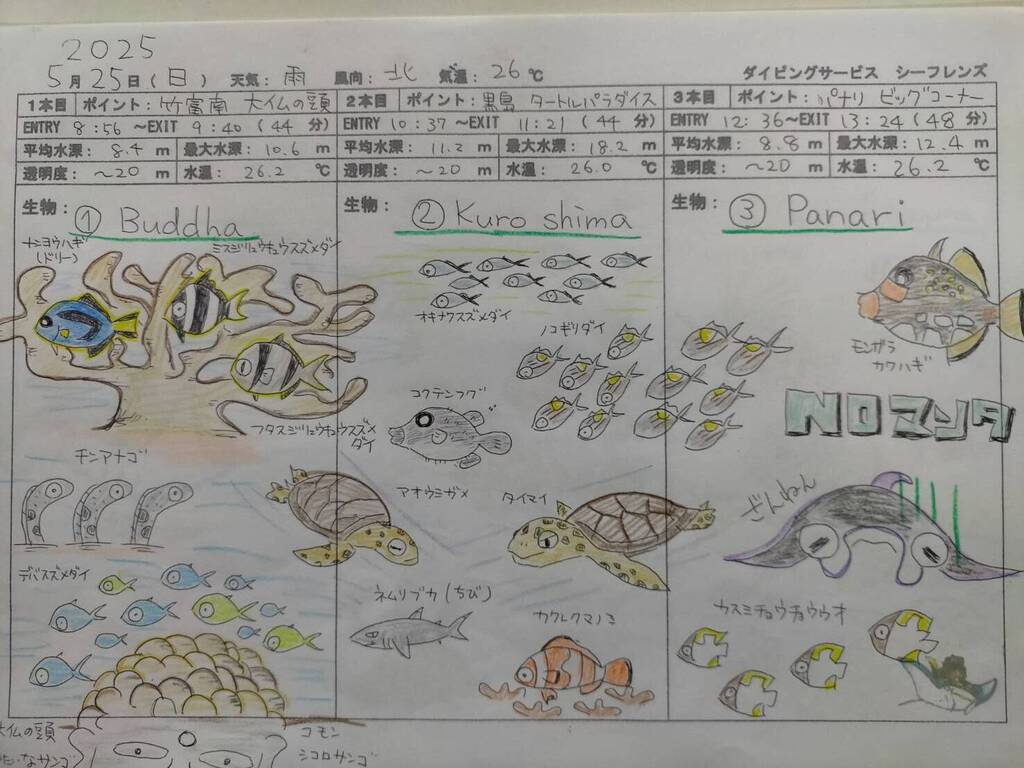 2025
5月25日(日) 天気:雨 風向:北 気温:26℃ ダイビングサービス シーフレンズ
1本目 ポイント:竹富南 大仏の頭
ENTRY 8:56 ~EXIT 9:40 (44分)
平均水深: 8.4 m 最大水深: 10.6 m
透明度: ~20 m 水温: 26.2 ℃
生物:
① Buddha
ナンヨウハギ
(ドリー)
ミスジリュウキュウスズメダイ
フタスジリュウキュウスズメ
ダイ
チンアナゴ
デバスズメダイ
大仏の頭
コモン
シコロサンゴ
2本目 ポイント:黒島 タートルパラダイス
ENTRY 10:37 ~EXIT 11:21 (44分)
平均水深: 11.2 m 最大水深: 18.2 m
透明度: ~20 m 水温: 26.0 ℃
生物:
② Kuroshima
オキナワスズメダイ
ノコギリダイ
コクテンフグ
アオウミガメ
タイマイ
ネムリブカ(ちび)
カクレクマノミ
3本目 ポイント:パナリ ビッグコーナー
ENTRY 12:36~EXIT 13:24 (48分)
平均水深: 8.8 m 最大水深: 12.4 m
透明度: ~20 m 水温: 26.2 ℃
生物:
③ Panari
モンガラ
カワハギ
NOマンタ
ざんねん
カスミチョウチョウウオ